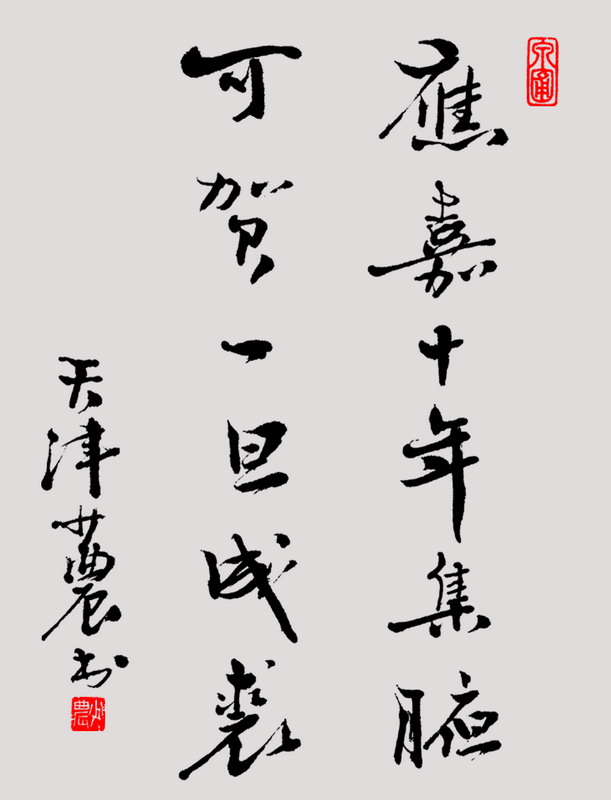 應嘉十年集腋
可贺一旦成裘
天津農书